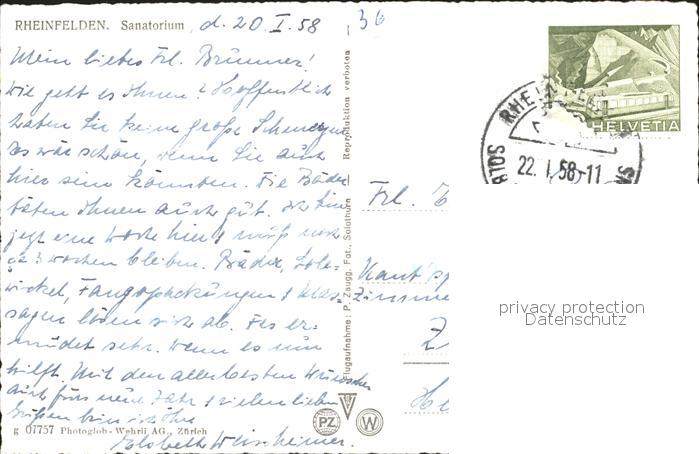 RHEINFELDEN. Sanatorium, d. 20 I. 58
36
Mein liebes Frl. Brunner!
wie geht es Ihnen? Hoffentlich
haben Sie keine große Schmerzen
Es wär schön, wenn Sie auch
hier sein könnten. Die Bäder
täten Ihnen auch gut. Ich bin
jetzt eine Woche hier & muß noch
ca 3 Wochen bleiben. Bäder, Sole-
wickel, Fangopackungen &
sagen lösen sich ab. Es er-
müdet sehr. Wenn es nun
hilft. Mit den allerbesten Wünschen
auch fürs neue Jahr & vielen lieben
Grüßen bin ich Ihre
Elsbeth Weinheimer.
g 07757 Photoglob-Wehrli AG., Zürich
Flugaufnahme: P. Zaugg, Fot., Solothurn
Reproduktion verboten
PZ
W
Frl.
Kant. Sp
Zimmer
Z
HELVETIA
22. I. 58-11
privacy protection
Datenschutz